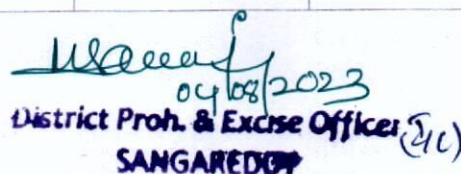 04/08/2023
District Proh. & Excise Officer (I/C)
SANGAREDDY